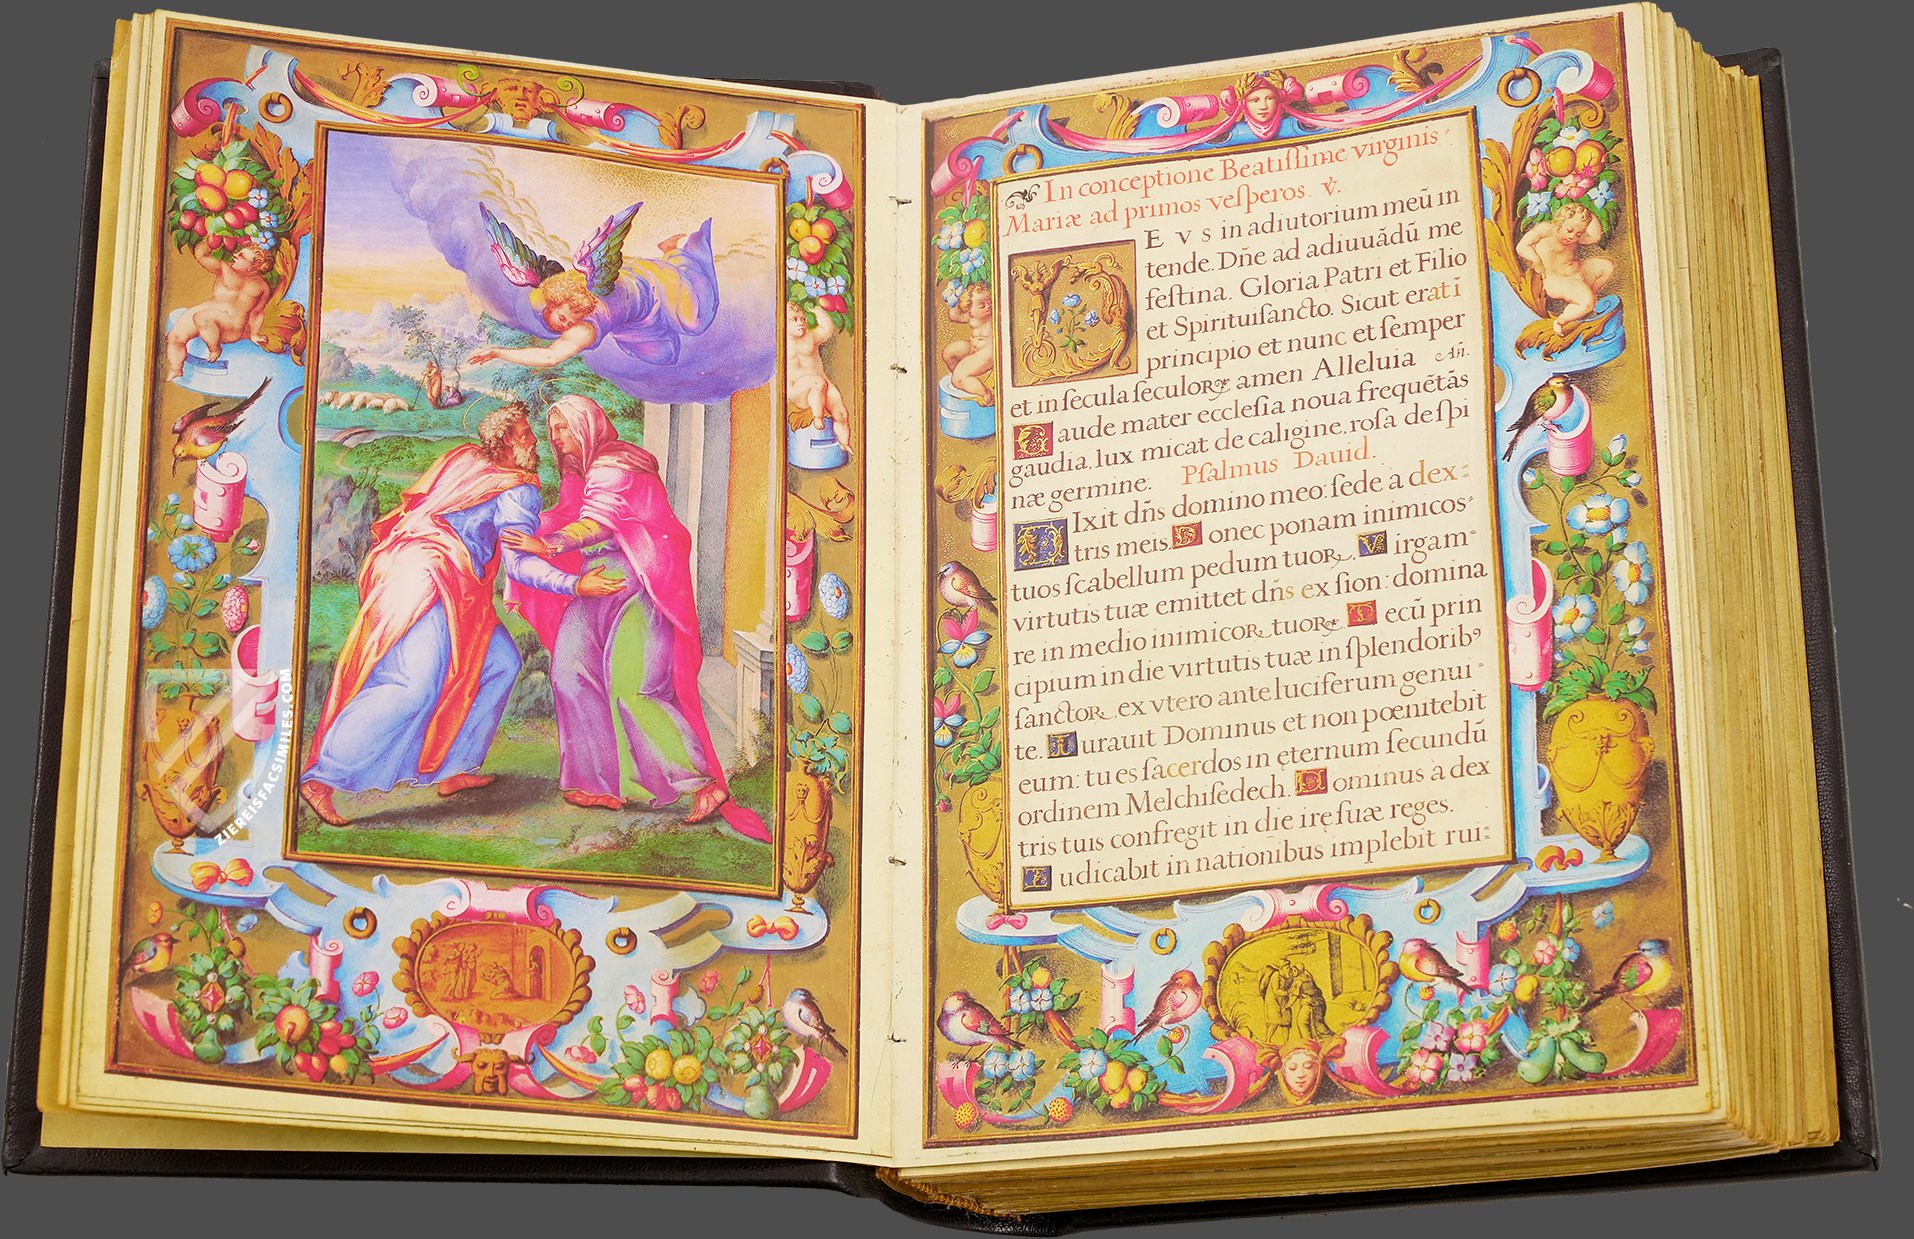 ZIEREISFACSIMILES.COM
In conceptione Beatiſſime virginis
Mariæ ad primos veſperos. ꝟ.
E v s in adiutorium meū in
tende. Dñe ad adiuuādū me
feſtina. Gloria Patri et Filio
et Spirituiſancto. Sicut erat ī
principio et nunc et ſemper
et in ſecula ſeculoꝝ amen Alleluia Añ.
G aude mater eccleſia noua frequētās
gaudia, lux micat de caligine, roſa de ſpi
næ germine. Pſalmus Dauid.
D Ixit dñs domino meo: ſede a dex:
tris meis. D onec ponam inimicos
tuos ſcabellum pedum tuoꝝ. V irgam
virtutis tuæ emittet dñs ex ſion: domina
re in medio inimicoꝝ tuoꝝ T ecū prin
cipium in die virtutis tuæ in ſplendoribꝰ
ſanctoꝝ, ex vtero ante luciferum genui
te. I urauit Dominus et non pœnitebit
eum: tu es ſacerdos in ęternum ſecundū
ordinem Melchiſedech. D ominus a dex
tris tuis confregit in die irę ſuæ reges.
I udicabit in nationibus implebit rui=